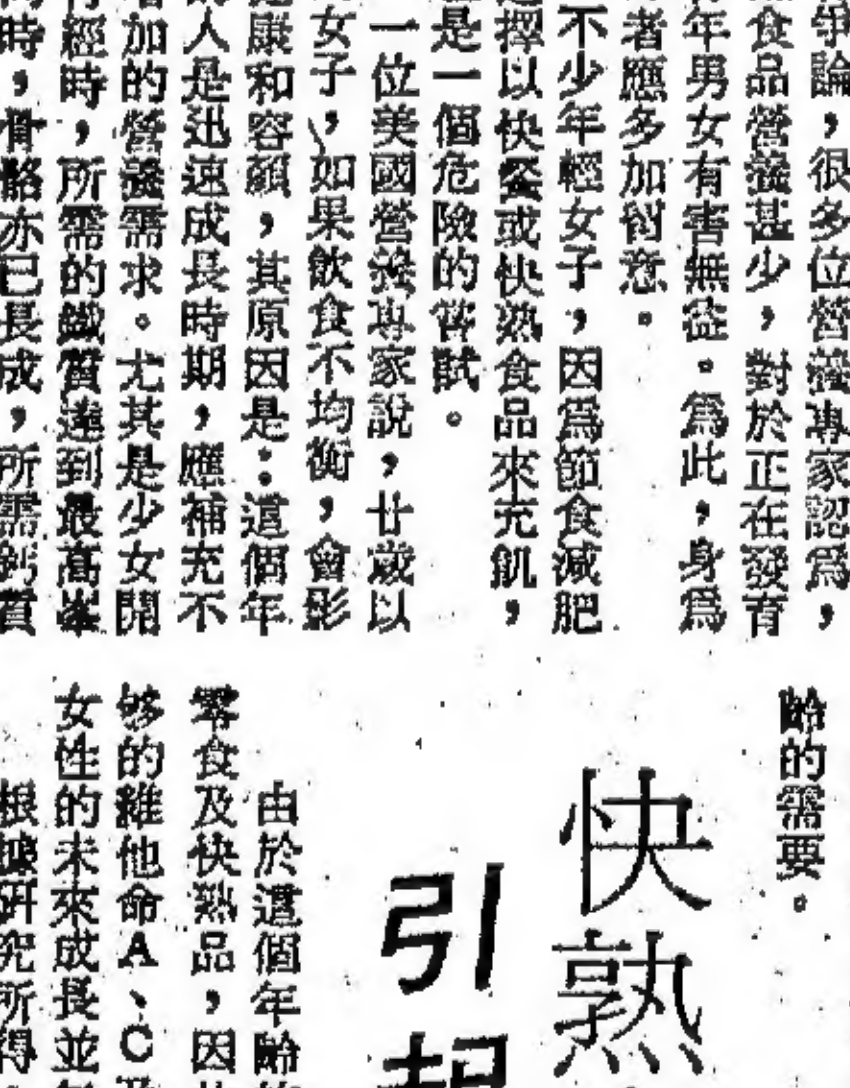 爭論，很多位營養專家認爲，
食品營養甚少，對於正在發育
年男女有害無益。爲此，身爲
者應多加留意。
不少年輕女子，因爲節食減肥
擇以快餐或快熟食品來充飢，
是一個危險的嘗試。
一位美國營養專家說，廿歲以
女子，如果飲食不均衡，會影
康和容顏，其原因是：這個年
人是迅速成長時期，應補充不
加的營養需求。尤其是少女開
經時，所需的鐵質達到最高峯
時，骨骼亦已長成，所需鈣質
齡的需要。
快熟
引起
由於這個年齡
零食及快熟品，因
够的維他命A、C及
女性的未來成長並
根據研究所得